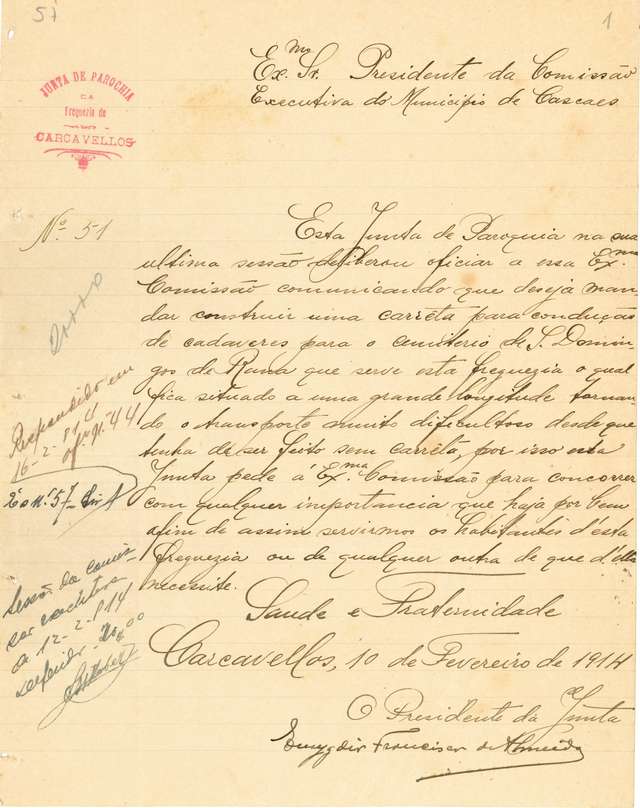 57
1
JUNTA DE PAROCHIA
DA
Freguezia de
CARCAVELLOS
Ex.mo Sr. Presidente da Comissão
Executiva do Municipio de Cascaes
Nº 51
Esta Junta de Paroquia na sua
ultima sessão deliberou oficiar a essa Ex.ma
Comissão comunicando que deseja man
dar construir uma carreta para condução
de cadaveres para o cemiterio de S. Domin
gos de Rana que serve esta freguezia o qual
fica situado a uma grande longitude tornan
do o transporte muito dificultoso desde que
tenha de ser feito sem carreta, por isso esta
Junta pede á Ex.ma Comissão para concorrer
com qualquer importancia que haja por bem
afim de assim servirmos os habitantes d'esta
freguezia ou de qualquer outra de que d'ella
necesite.
Saude e Fraternidade
Carcavellos, 10 de Fevereiro de 1914
O Presidente da Junta
Emygdio Francisco de Almeida
Respondido em
16-2-914
ofº nº 44
Sessão da comis-
são executiva
de 12-2-914